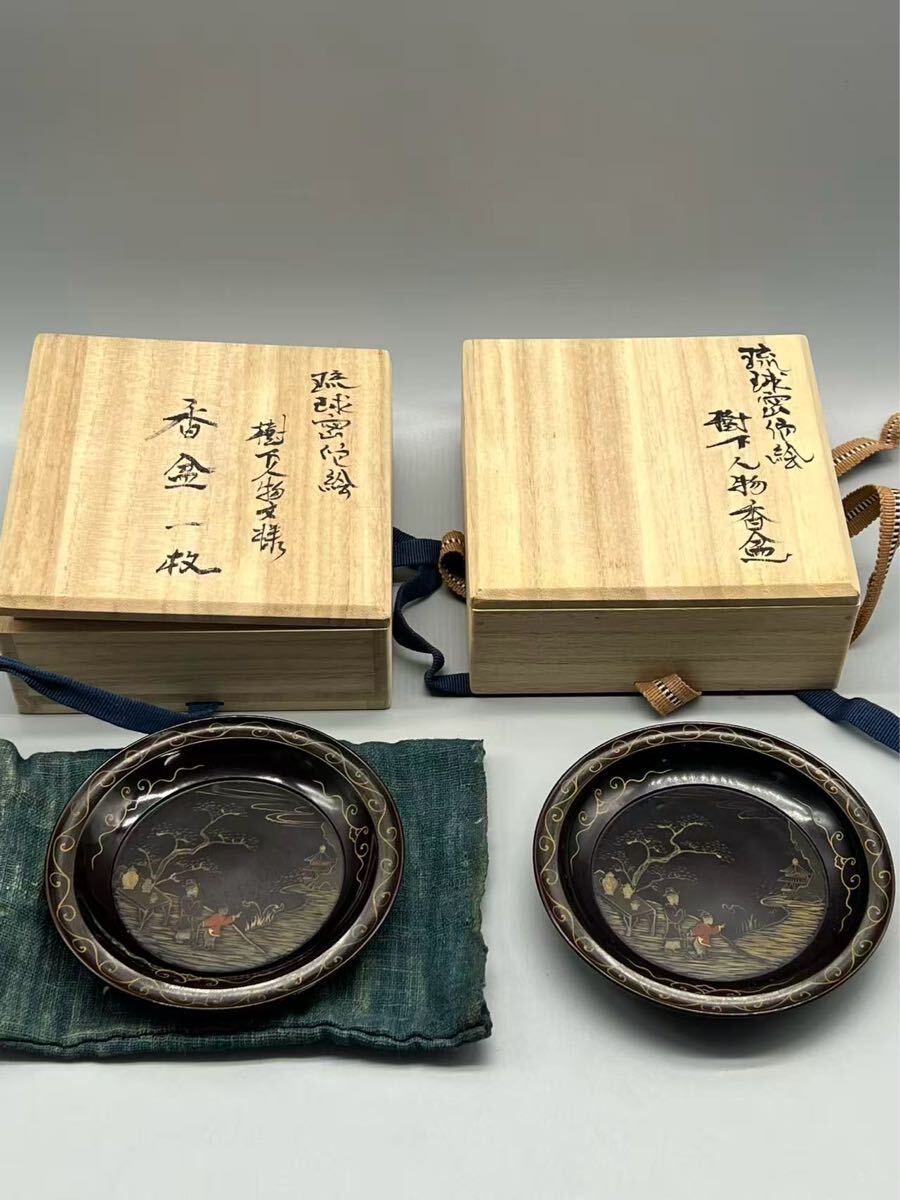 琉球密陀絵
樹下人物文様
香盆一枚
琉球密陀絵
樹下人物香盆